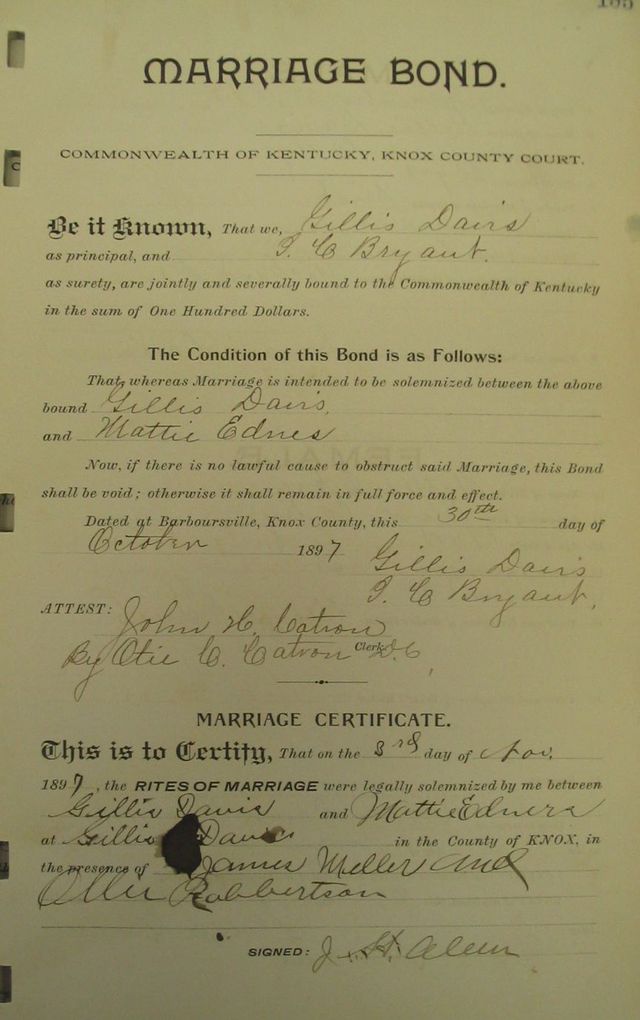 MARRIAGE BOND.
COMMONWEALTH OF KENTUCKY, KNOX COUNTY COURT.
Be it Known, That we, Gillis Davis
as principal, and I. C Bryant.
as surety, are jointly and severally bound to the Commonwealth of Kentucky
in the sum of One Hundred Dollars.
The Condition of this Bond is as Follows:
That, whereas Marriage is intended to be solemnized between the above
bound Gillis Davis,
and Mattie Ednes
Now, if there is no lawful cause to obstruct said Marriage, this Bond
shall be void; otherwise it shall remain in full force and effect.
Dated at Barboursville, Knox County, this 30th day of
October 1897 Gillis Davis
I. C Bryant,
ATTEST: John H. Catron
By Otie C. Catron Clerk D.C,
MARRIAGE CERTIFICATE.
This is to Certify, That on the 3rd day of Nov.
1897, the RITES OF MARRIAGE were legally solemnized by me between
Gillis Davis and Mattie Edners
at Gillis Davis in the County of KNOX, in
the presence of James Meller and
Ollie Robbertson
SIGNED: J. H.